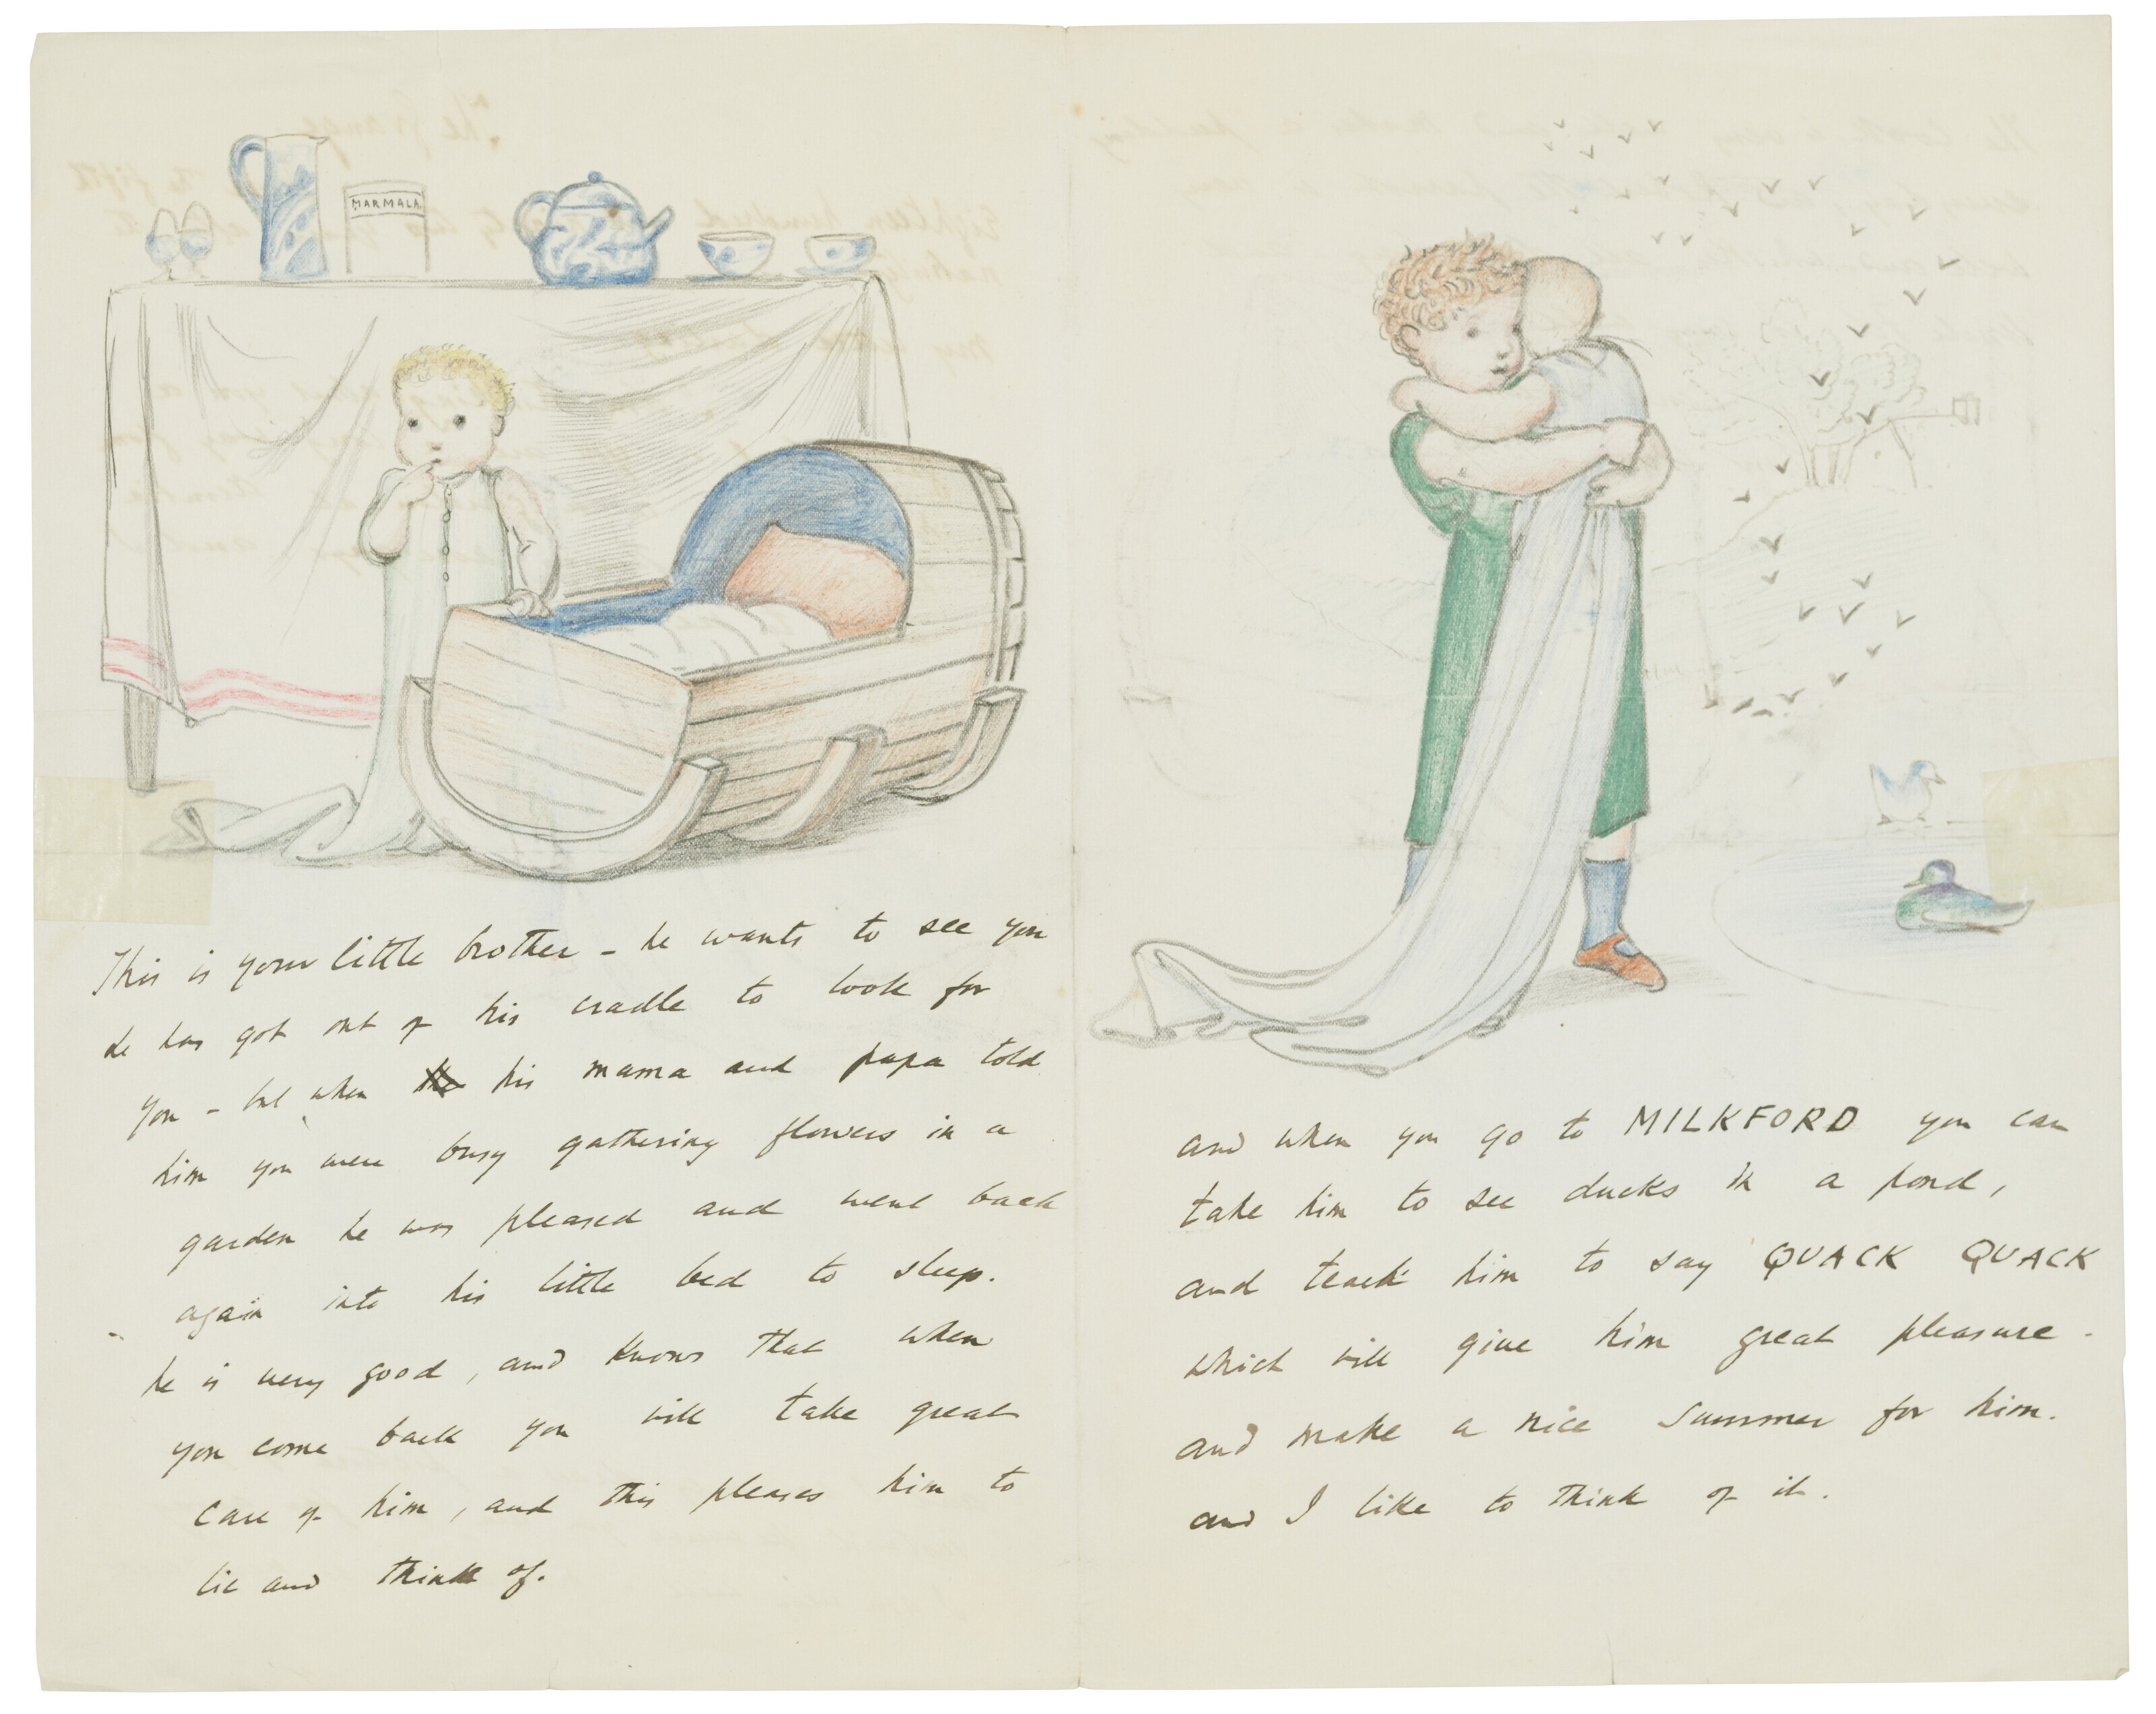 MARMALA
This is your little brother - he wants to see you
he has got out of his cradle to look for
you - but when his mama and papa told
him you were busy gathering flowers in a
garden he was pleased and went back
again into his little bed to sleep.
he is very good, and knows that when
you come back you will take great
care of him, and this pleases him to
lie and think of.
and when you go to MILKFORD you can
take him to see ducks in a pond,
and teach him to say QUACK QUACK
which will give him great pleasure -
and make a nice summer for him.
and I like to think of it.